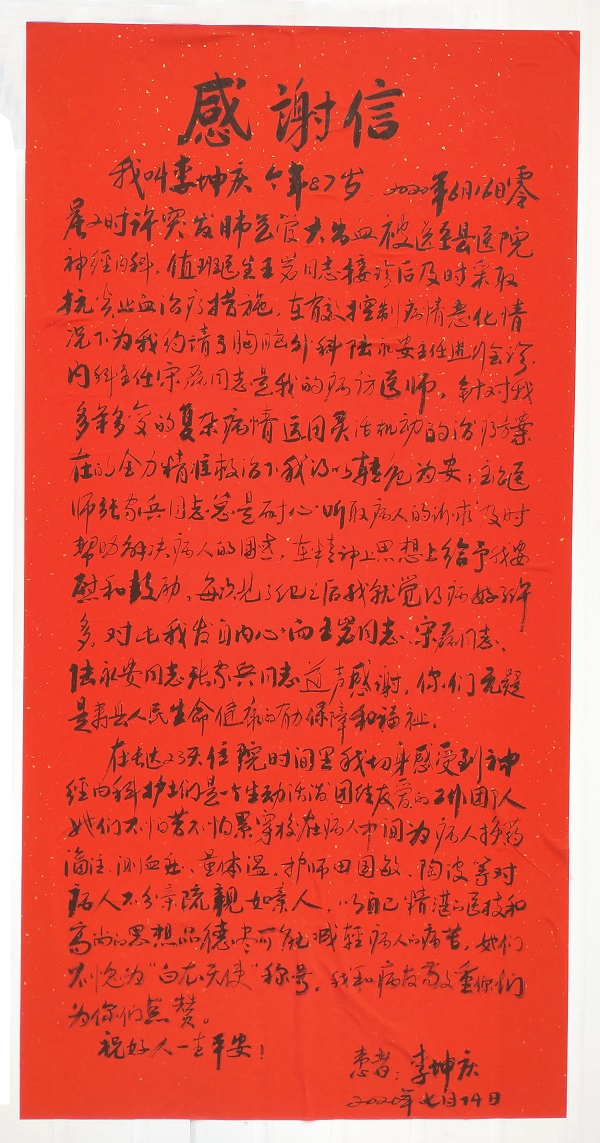 感谢信
我叫李坤庆 今年87岁，2020年6月16日零
晨2时许突发肺器管大出血被送至县医院
神经内科，值班医生王岩同志接诊后及时采取
抗炎止血治疗措施，在有效控制病情恶化情
况下为我约请了胸脑外科陆永安主任进行会诊，
内科主任宋磊同志是我的病访医师，针对我
多年多变的复杂病情运用灵活机动的治疗方案
在的全力精准救治下我得以转危为安；主治医
师张家兵同志总是耐心听取病人的诉求及时
帮助解决病人的困惑，在精神上思想上给予我安
慰和鼓励，每次见了他之后我就觉得病好了许
多，对此我发自内心向王岩同志、宋磊同志、
陆永安同志张家兵同志道声感谢，你们无疑
是寿县人民生命健康的有力保障和福祉。
在长达23天住院时间里我切身感受到神
经内科护士们是一个生动活泼团结友爱的工作团队
她们不怕苦不怕累穿梭在病人中间为病人换药
滴注、测血压、量体温，护师田国敏、陶波等对
病人不分亲疏亲如亲人，以自己精湛的医技和
高尚的思想品德尽可能减轻病人的痛苦，她们
不愧为“白衣天使”称号，我和病友尊重你们
为你们点赞。
祝好人一生平安！
患者：李坤庆
2020年七月14日